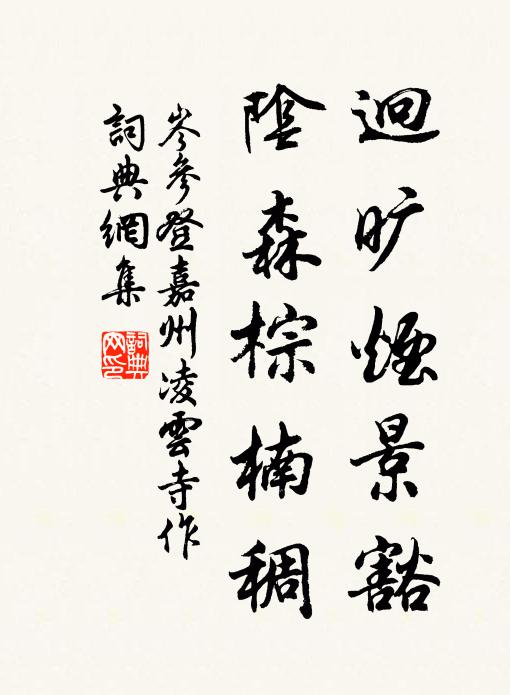 迥旷煙景豁
陰森棕楠稠
岑參登嘉州凌雲寺作
詞典網集
詞典网印